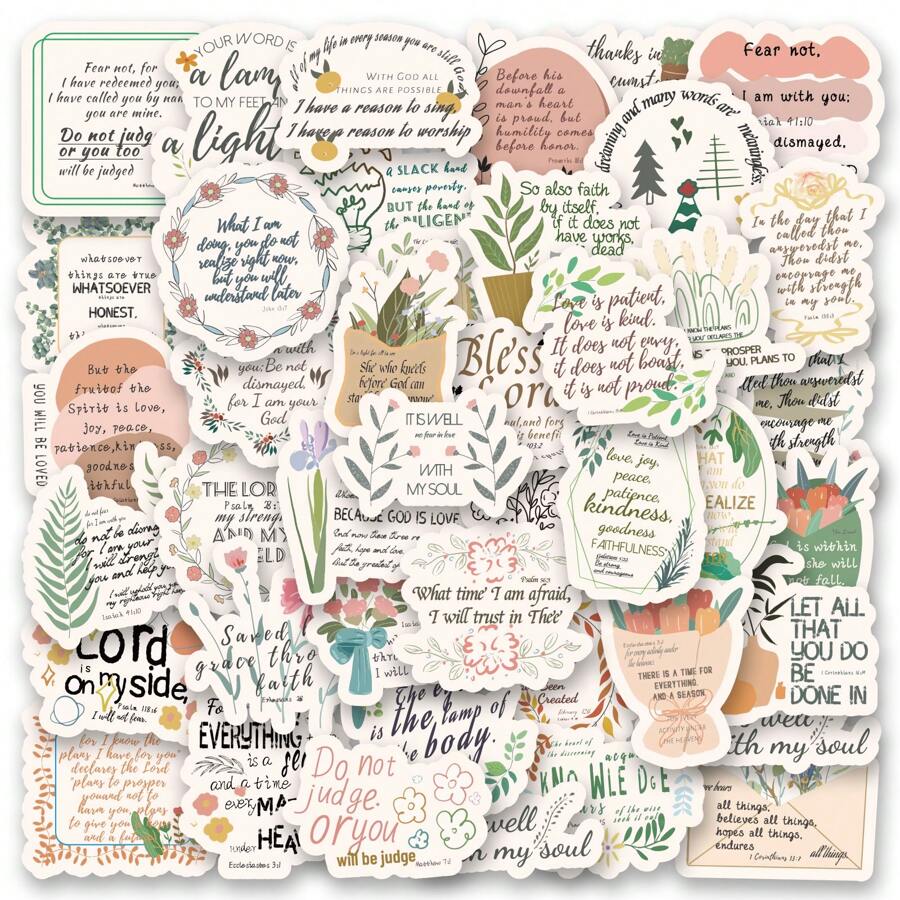 Fear not, for
I have redeemed you;
I have called you by nam
you are mine.
Do not judg
or you too
will be judged
YOUR WORD IS
a lamp
TO MY FEET AN
a light
all of my life in every season you are still God
WITH GOD ALL
THINGS ARE POSSIBLE
I have a reason to sing,
I have a reason to worship
Before his
downfall a
man's heart
is proud, but
humility comes
before honor.
thanks in
cumst
dreaming and many words are meaningless.
Fear not,
I am with you;
iah 41:10
dismayed,
What I am
doing, you do not
realize right now,
but you will
understand later
John 13:7
A SLACK hand
causes poverty,
BUT the hand of
the DILIGEN
So also faith
by itself,
if it does not
have works,
dead
In the day that I
called thou
answeredst me,
Thou didst
encourage me
with strength
in my soul.
Psalm 138:3
whatsoever
things are true
WHATSOEVER
things are
HONEST,
She who kneels
before God can
Love is patient,
love is kind.
It does not envy,
it does not boast,
it is not proud.
KNOW THE PLANS
YOU" DECLARES THE
PROSPER
YOU, PLANS TO
But the
fruit of the
Spirit is love,
joy, peace,
patience, kindness,
goodnes
ithful
YOU WILL BE LOVED
n with
you; Be not
dismayed,
for I am your
God
Bless
ord
that I
lled thou answeredst
me, Thou didst
encourage me
with strength
IT IS WELL
no fear in love
WITH
MY SOUL
Love is Patient,
Love is Kind
love, joy,
peace,
patience,
kindness,
goodness
FAITHFULNESS"
Be strong
and courageous
HAT
am
you do
EALIZE
now,
THE LOR
Psalm 28:7
my streng
AND MY
ELD
do not fear
for I am with you
do not be dismay
for I am your
I will strengt
you and help yo
I will uphold you
my righteous right han
Isaiah 41:10
BECAUSE GOD IS LOVE
And now these three re
faith, hope and love.
But the greatest of
is within
she will
not fall.
Psalm 56:3
What time' I am afraid,
I will trust in Thee'
Saved
grace thro
faith
Ephesians 2:8
Lord
is
on my side,
Psalm 118:6
I will not fear.
THERE IS A TIME FOR
EVERYTHING.
AND A SEASON.
ACTIVITY UNDER
THE HEAVENS
LET ALL
THAT
YOU DO
BE
DONE IN
1 Corinthians 16:14
been
Created
The ey
is the lamp of
he body.
Fo
EVERYTHING
is a
and a time
every MA-
under HEA
Ecclesiastes 3:1
for I know the
plans I have for you"
declares the Lord
"plans to prosper
youand not to
harm you, plans
to give you
and a futu
Do not
judge.
Or you
will be judge
Matthew 7:1
the heart of
the discerning
acqu
KNO WLEDGE
of the wise
well
h my soul
well
th my soul
bears
all things,
believes all things,
hopes all things,
endures
all things.
1 Corinthians 13:7